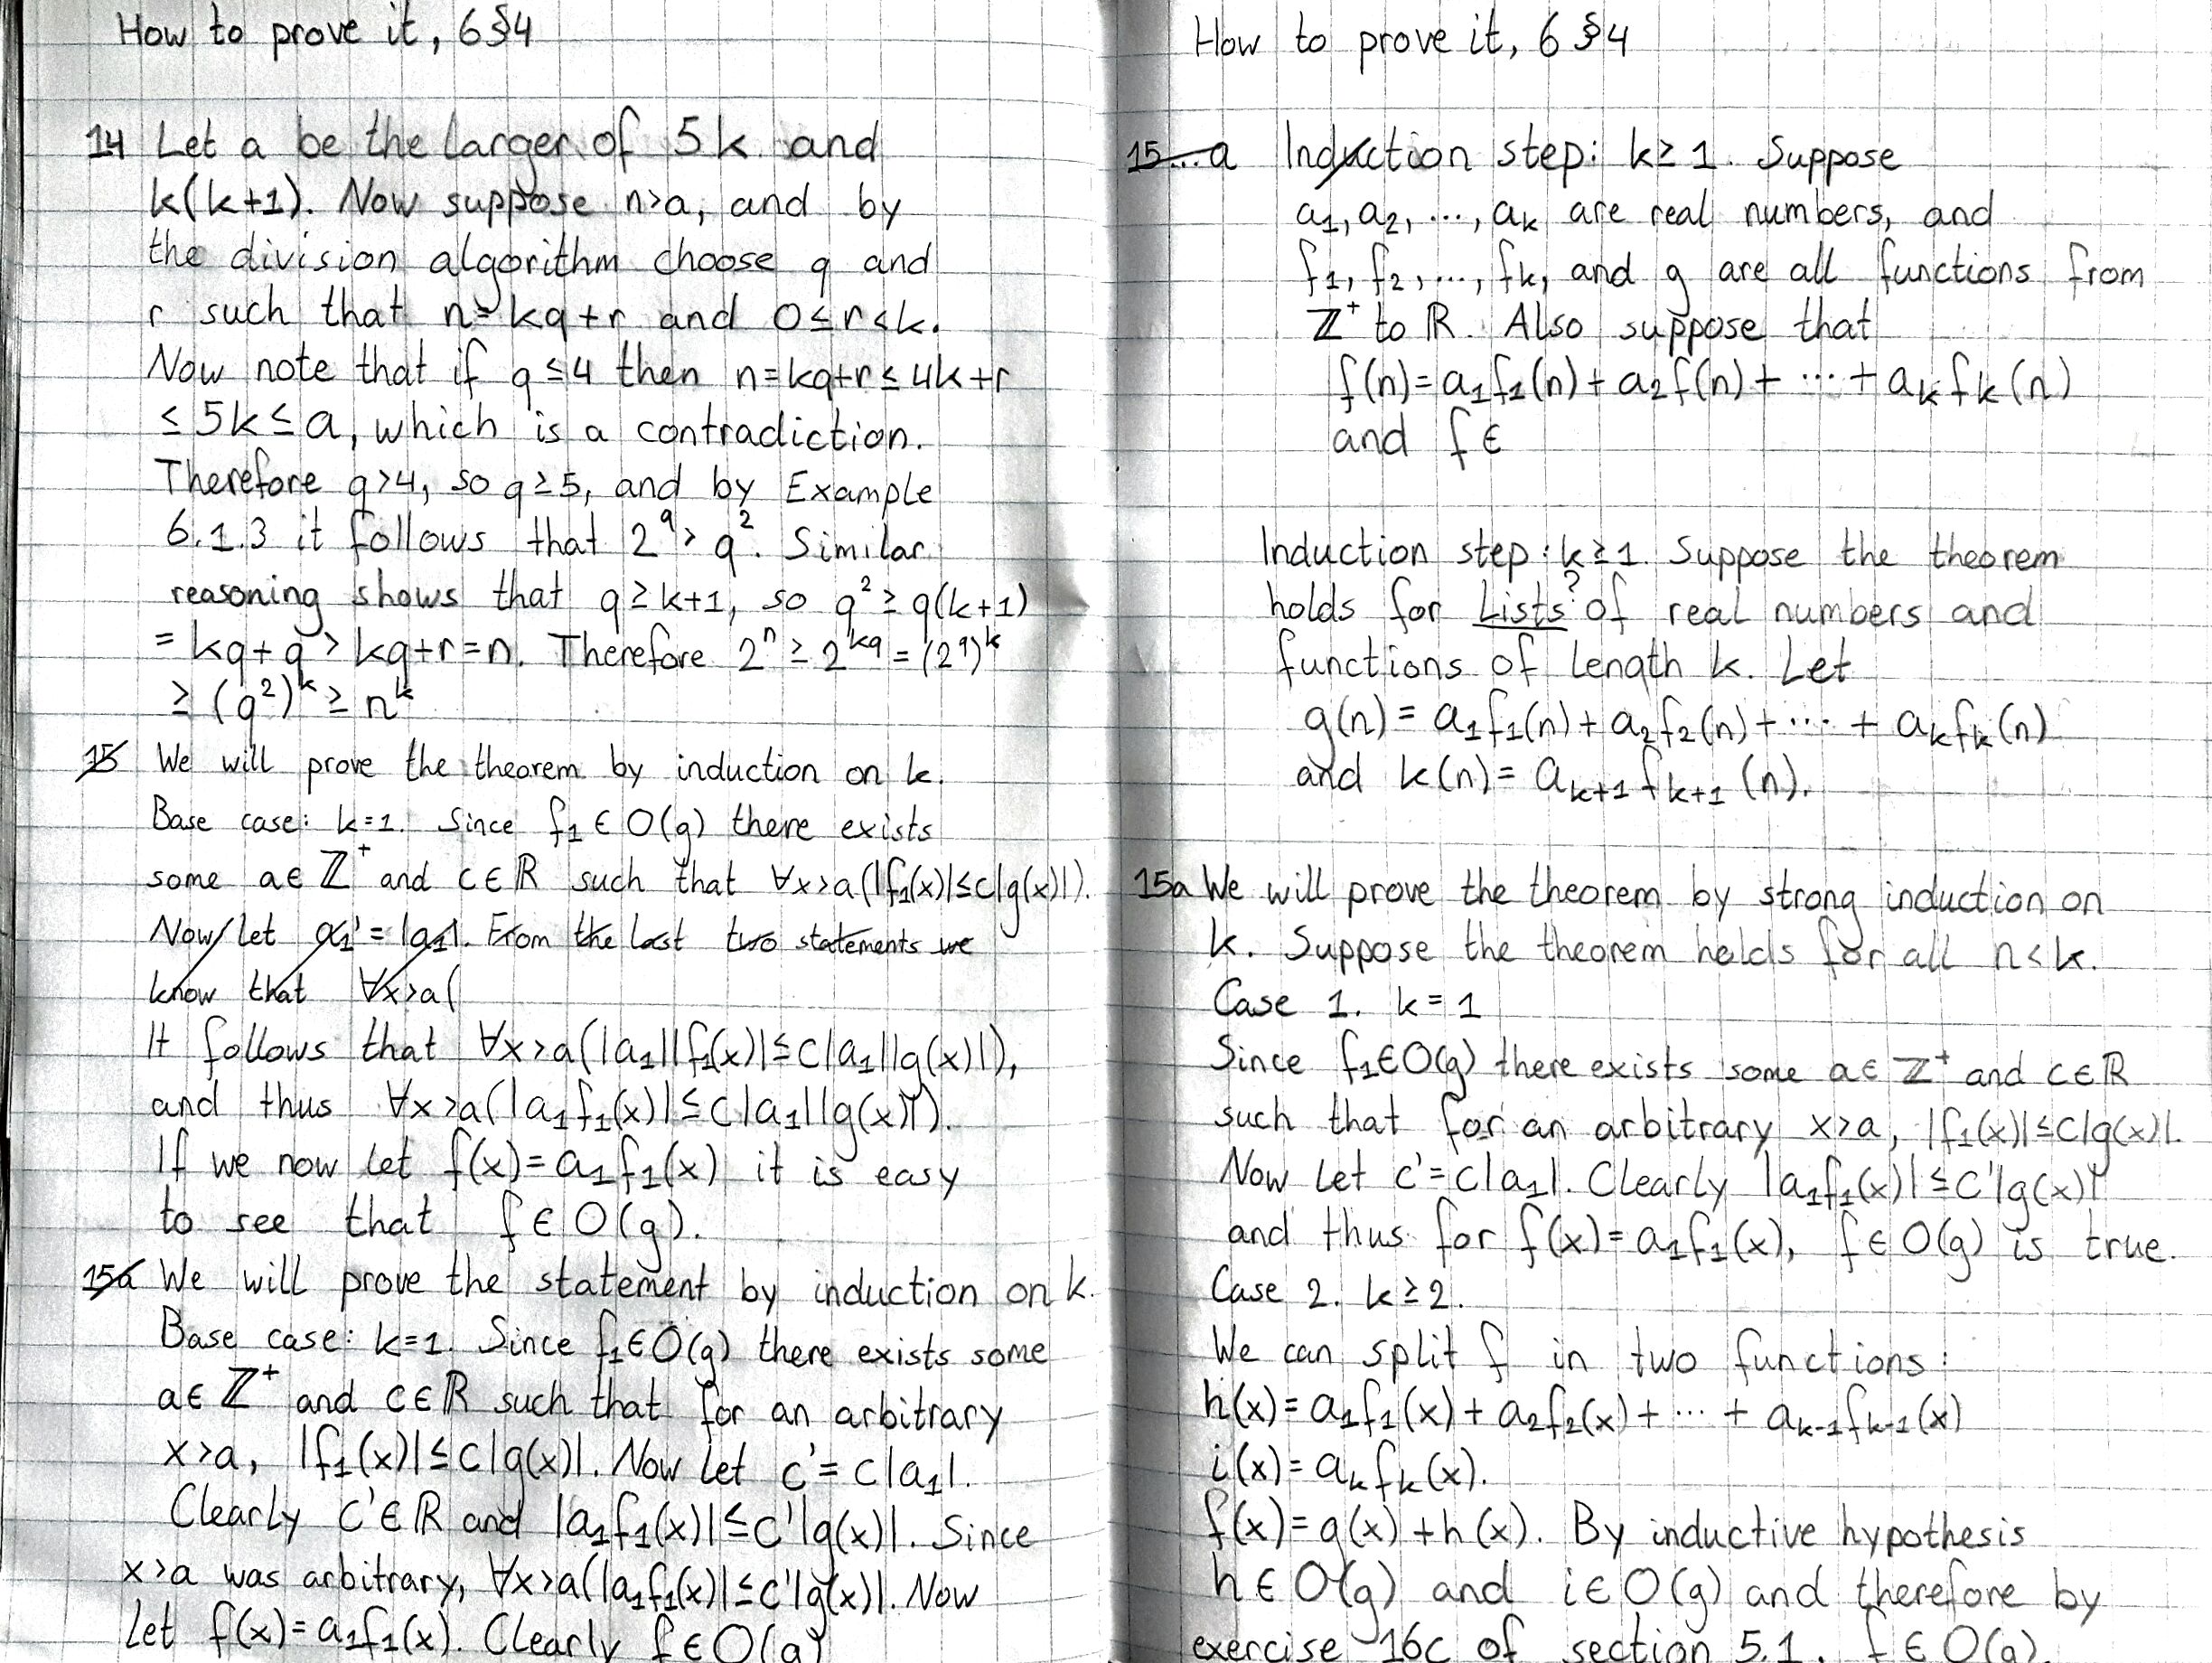 How to prove it, 6§4
14 Let a be the larger of 5k and
k(k+1). Now suppose n>a, and by
the division algorithm choose q and
r such that n=kq+r and 0≤r<k.
Now note that if q≤4 then n=kq+r≤4k+r
≤5k≤a, which is a contradiction.
Therefore q>4, so q≥5, and by Example
6.1.3 it follows that 2^q > q^2. Similar
reasoning shows that q≥k+1, so q^2≥q(k+1)
=kq+q>kq+r=n. Therefore 2^n ≥ 2^kq = (2^q)^k
≥ (q^2)^k ≥ n^k
15 We will prove the theorem by induction on k.
Base case: k=1. Since f₁∈O(g) there exists
some a∈ℤ⁺ and c∈ℝ such that ∀x>a(|f₁(x)|≤c|g(x)|).
Now let a₁'=|a₁|. From the last two statements we
know that ∀x>a(
It follows that ∀x>a(|a₁||f₁(x)|≤c|a₁||g(x)|),
and thus ∀x>a(|a₁f₁(x)|≤c|a₁||g(x)|).
If we now let f(x)=a₁f₁(x) it is easy
to see that f∈O(g).
15a We will prove the statement by induction on k.
Base case: k=1. Since f₁∈O(g) there exists some
a∈ℤ⁺ and c∈ℝ such that for an arbitrary
x>a, |f₁(x)|≤c|g(x)|. Now let c'=c|a₁|.
Clearly c'∈ℝ and |a₁f₁(x)|≤c'|g(x)|. Since
x>a was arbitrary, ∀x>a(|a₁f₁(x)|≤c'|g(x)|. Now
Let f(x)=a₁f₁(x). Clearly f∈O(g)
How to prove it, 6§4
15...a Induction step: k≥1. Suppose
a₁, a₂, ..., aₖ are real numbers, and
f₁, f₂, ..., fₖ, and g are all functions from
ℤ⁺ to ℝ. Also suppose that
f(n)=a₁f₁(n)+a₂f(n)+ ··· +aₖfₖ(n)
and f∈
Induction step: k≥1. Suppose the theorem
holds for Lists? of real numbers and
functions of length k. Let
g(n)= a₁f₁(n)+a₂f₂(n)+ ··· + aₖfₖ(n)
and k(n)= aₖ₊₁fₖ₊₁(n).
15a We will prove the theorem by strong induction on
k. Suppose the theorem holds for all n<k.
Case 1. k=1
Since f₁∈O(g) there exists some a∈ℤ⁺ and c∈ℝ
such that for an arbitrary x>a, |f₁(x)|≤c|g(x)|.
Now let c'=c|a₁|. Clearly |a₁f₁(x)|≤c'|g(x)|
and thus for f(x)=a₁f₁(x), f∈O(g) is true.
Case 2. k≥2.
We can split f in two functions:
h(x)=a₁f₁(x)+a₂f₂(x)+ ··· + aₖ₋₁fₖ₋₁(x)
i(x)=aₖfₖ(x).
f(x)=g(x)+h(x). By inductive hypothesis
h∈O(g) and i∈O(g) and therefore by
exercise 16c of section 5.1, f∈O(g).